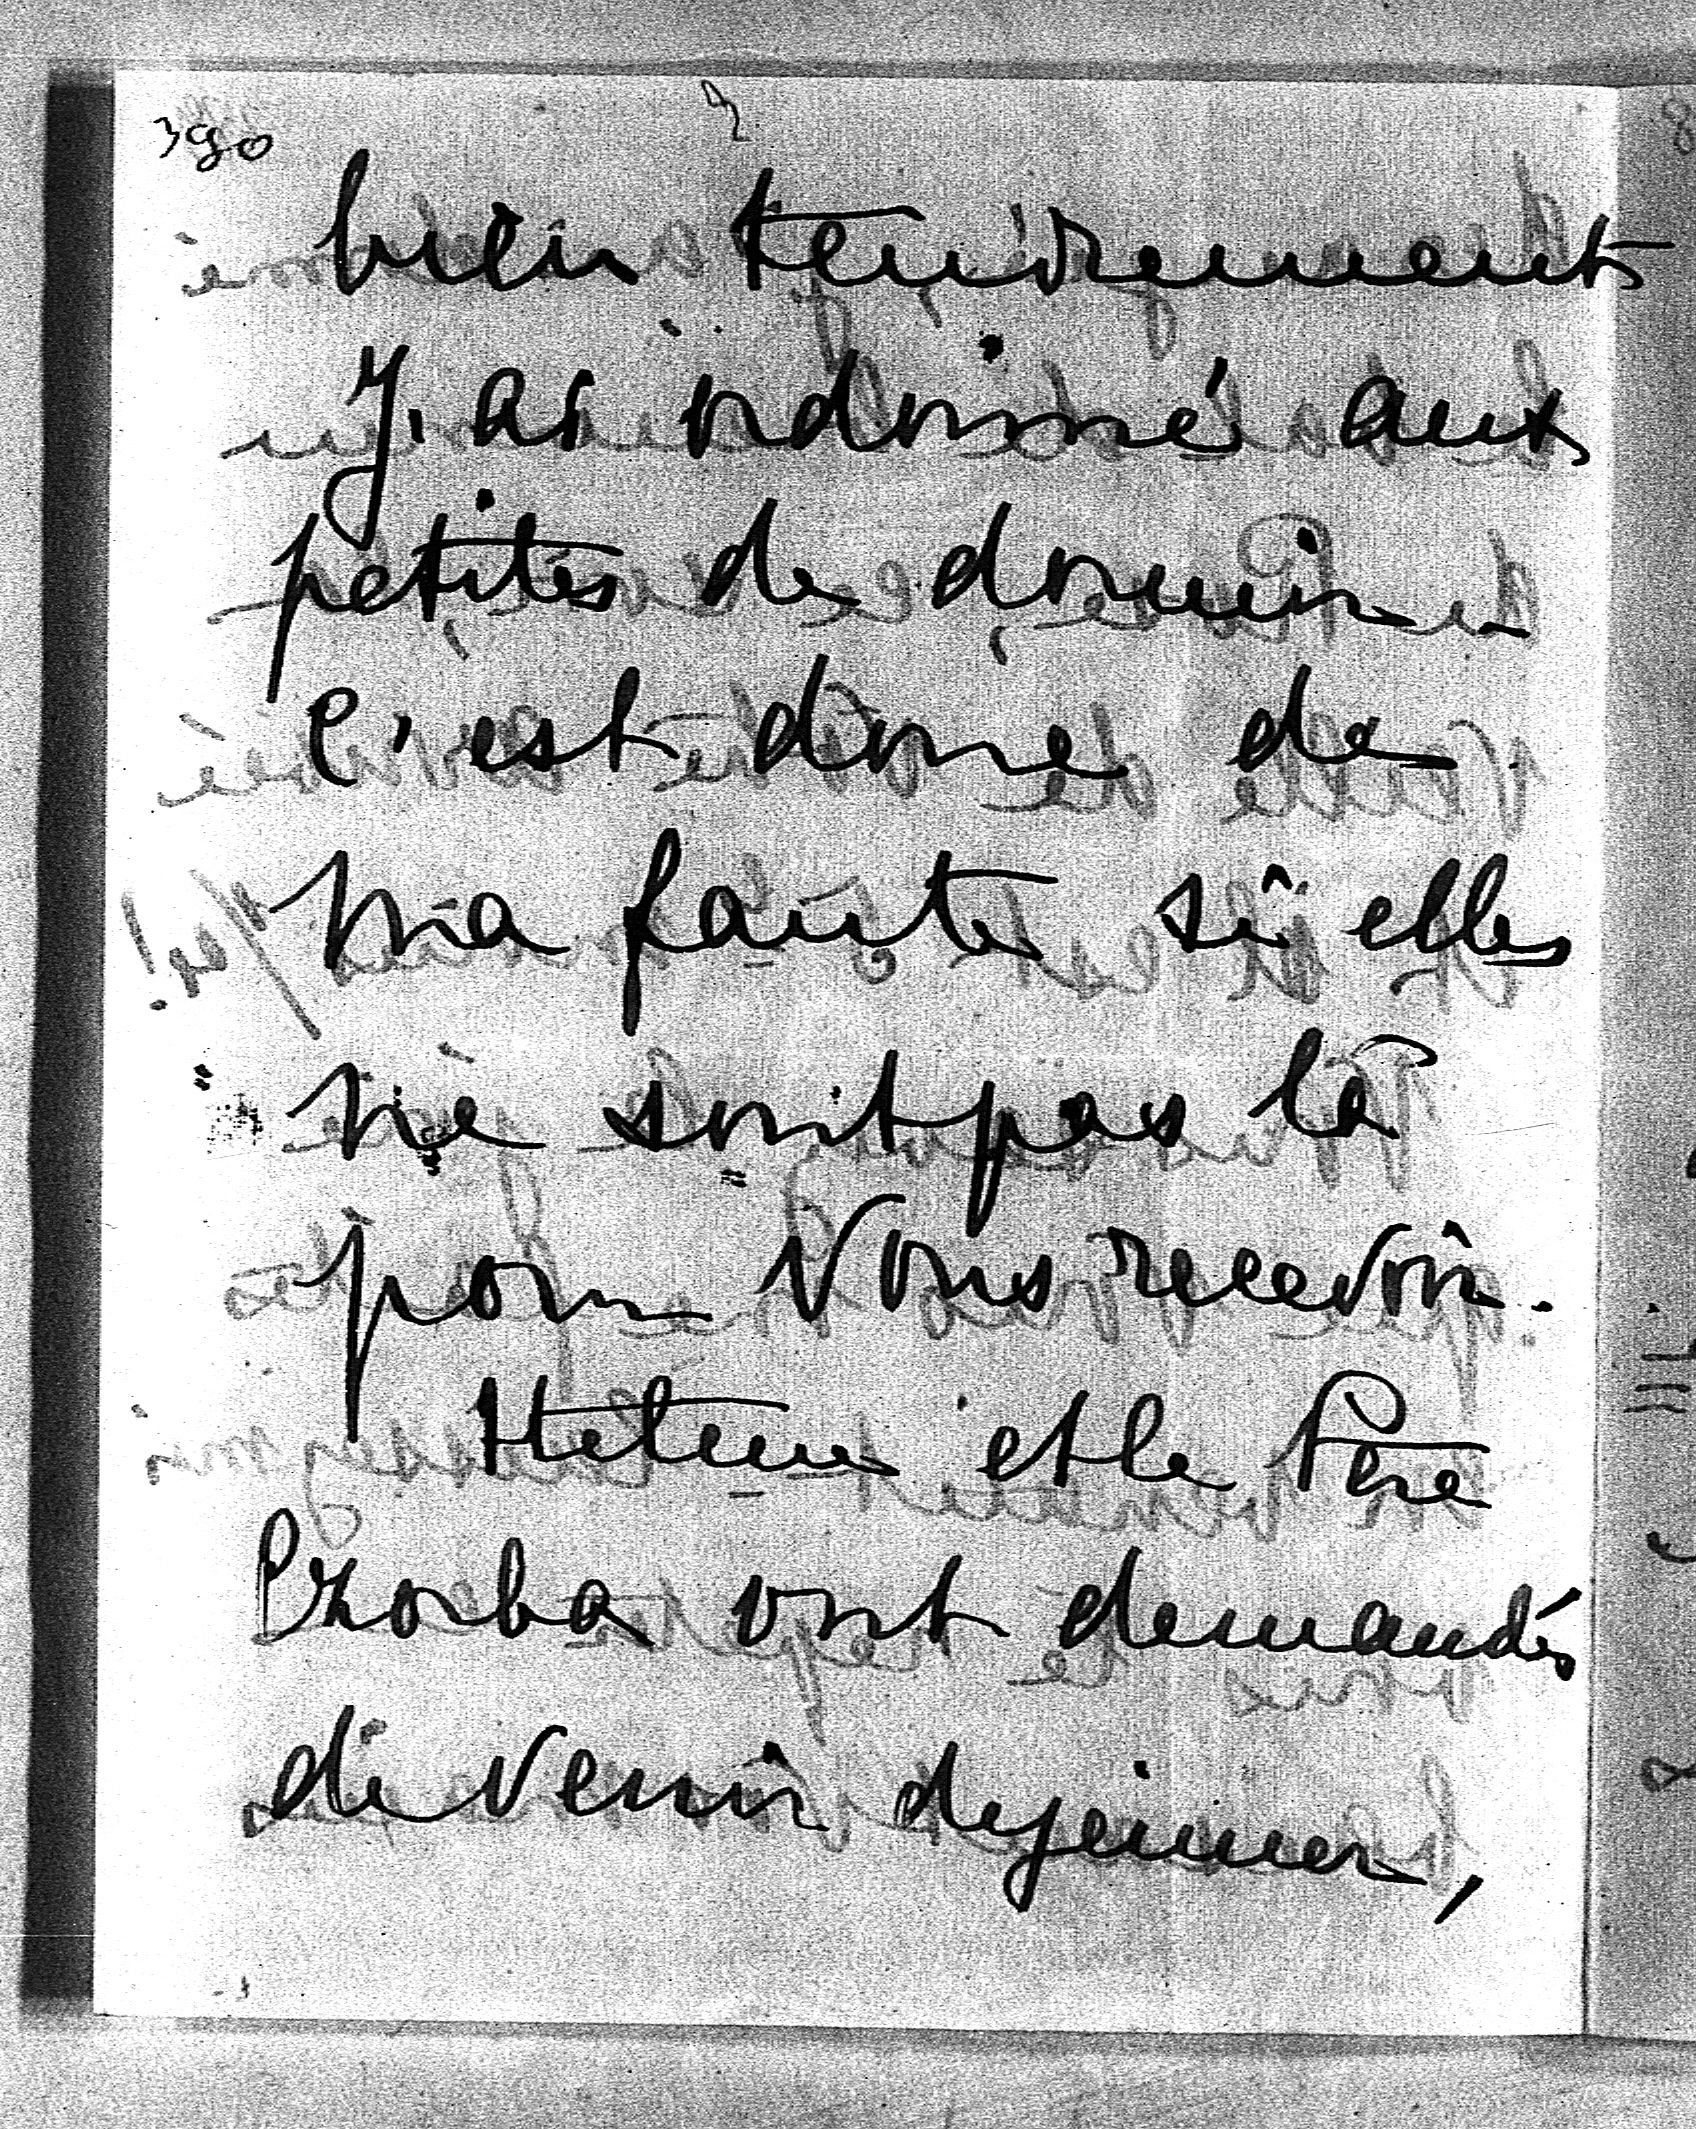 390
bien tendrement
J'ai ordonné aux
petites de dormir -
C'est donc de
ma faute si elles
ne sont pas là
pour vous recevoir.
et le Père
ont demandés
de venir dejeuner,